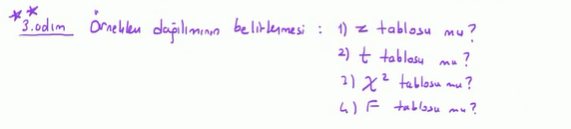 ** 3.adım Örneklem dağılımının belirlenmesi : 1) z tablosu mu?
2) t tablosu mu?
3) χ² tablosu mu?
4) F tablosu mu?